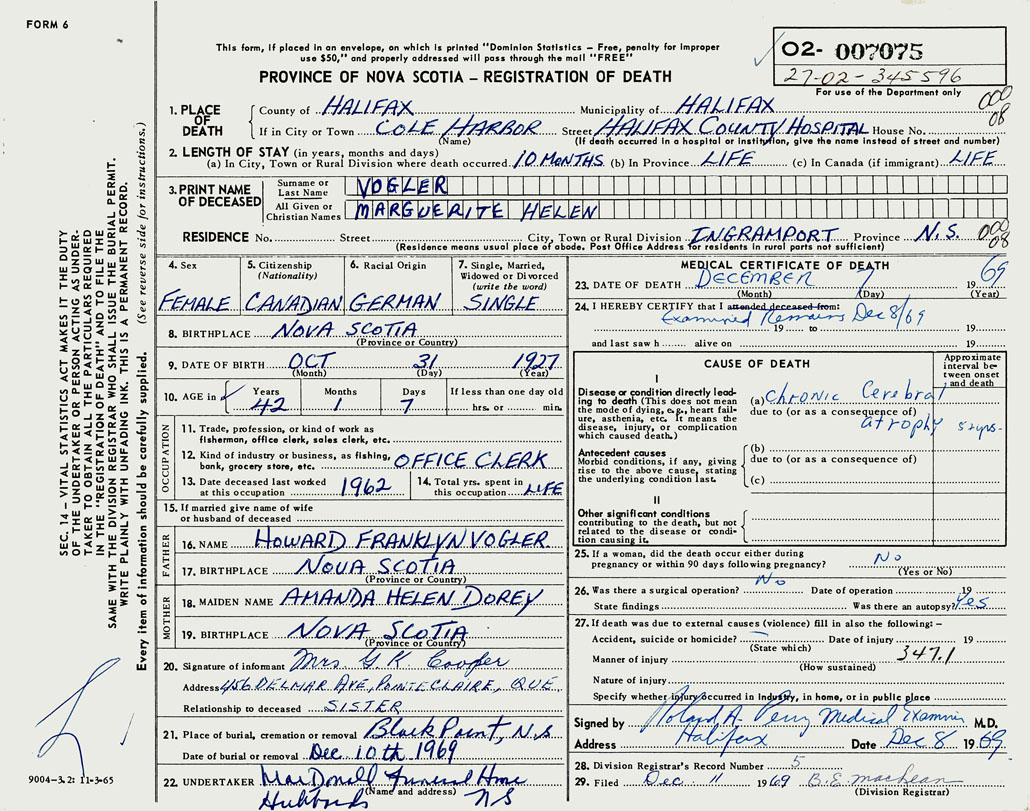 FORM 6
This form, if placed in an envelope, on which is printed "Dominion Statistics – Free, penalty for improper
use $50," and properly addressed will pass through the mail "FREE"
PROVINCE OF NOVA SCOTIA – REGISTRATION OF DEATH
02- 007075
27-02-345596
For use of the Department only
000
08
1. PLACE OF DEATH
County of HALIFAX Municipality of HALIFAX
If in City or Town COLE HARBOR Street HALIFAX COUNTY HOSPITAL House No.
(Name) (If death occurred in a hospital or institution, give the name instead of street and number)
2. LENGTH OF STAY (in years, months and days)
(a) In City, Town or Rural Division where death occurred 10 MONTHS (b) In Province LIFE (c) In Canada (if immigrant) LIFE
3. PRINT NAME OF DECEASED
Surname or Last Name VOGLER
All Given or Christian Names MARGUERITE HELEN
RESIDENCE No. Street City, Town or Rural Division INGRAMPORT Province N.S. 000
08
(Residence means usual place of abode. Post Office Address for residents in rural parts not sufficient)
4. Sex
FEMALE
5. Citizenship
(Nationality)
CANADIAN
6. Racial Origin
GERMAN
7. Single, Married,
Widowed or Divorced
(write the word)
SINGLE
8. BIRTHPLACE NOVA SCOTIA
(Province or Country)
9. DATE OF BIRTH OCT 31 1927
(Month) (Day) (Year)
10. AGE in Years Months Days If less than one day old
42 1 7 hrs. or min.
OCCUPATION
11. Trade, profession, or kind of work as
fishermen, office clerk, sales clerk, etc.
12. Kind of industry or business, as fishing,
bank, grocery store, etc. OFFICE CLERK
13. Date deceased last worked
at this occupation 1962
14. Total yrs. spent in
this occupation LIFE
15. If married give name of wife
or husband of deceased
FATHER
16. NAME HOWARD FRANKLYN VOGLER
17. BIRTHPLACE NOVA SCOTIA
(Province or Country)
MOTHER
18. MAIDEN NAME AMANDA HELEN DOREY
19. BIRTHPLACE NOVA SCOTIA
(Province or Country)
20. Signature of informant Mrs G. K. Cooper
Address 456 DELMAR AVE, POINTE CLAIRE, QUE
Relationship to deceased SISTER
21. Place of burial, cremation or removal Black Point, N.S
Date of burial or removal Dec 10th 1969
22. UNDERTAKER MacDonell Funeral Home
(Name and address)
Hubbards NS
MEDICAL CERTIFICATE OF DEATH
23. DATE OF DEATH DECEMBER 7 1969
(Month) (Day) (Year)
24. I HEREBY CERTIFY that I attended deceased from:
Examined Remains Dec 8/69
19 to 19
and last saw h alive on 19
CAUSE OF DEATH
Approximate
interval be-
tween onset
and death
I
Disease or condition directly lead-
ing to death (This does not mean
the mode of dying, e.g., heart fail-
ure, asthenia, etc. It means the
disease, injury, or complication
which caused death.)
(a) Chronic Cerebral
due to (or as a consequence of)
atrophy 5 yrs-
Antecedent causes
Morbid conditions, if any, giving
rise to the above cause, stating
the underlying condition last.
(b)
due to (or as a consequence of)
(c)
II
Other significant conditions
contributing to the death, but not
related to the disease or condi-
tion causing it.
25. If a woman, did the death occur either during
pregnancy or within 90 days following pregnancy? No
(Yes or No)
26. Was there a surgical operation? No Date of operation 19
State findings Was there an autopsy? Yes
27. If death was due to external causes (violence) fill in also the following: –
Accident, suicide or homicide? Date of injury 19
(State which)
347.1
Manner of injury
(How sustained)
Nature of injury
Specify whether injury occurred in Industry, in home, or in public place
Signed by Roland A. Perry Medical Examiner M.D.
Address Halifax Date Dec 8 1969
28. Division Registrar's Record Number 5
29. Filed Dec 11 1969 B.E. MacLean
(Division Registrar)
SEC. 14 – VITAL STATISTICS ACT MAKES IT THE DUTY
OF THE UNDERTAKER OR PERSON ACTING AS UNDER-
TAKER TO OBTAIN ALL THE PARTICULARS REQUIRED
IN THE "REGISTRATION OF DEATH" AND TO FILE THE
SAME WITH THE DIVISION REGISTRAR WHO SHALL ISSUE THE BURIAL PERMIT.
WRITE PLAINLY WITH UNFADING INK. THIS IS A PERMANENT RECORD.
Every item of information should be carefully supplied. (See reverse side for instructions.)
9004-3.2: 11-3-65